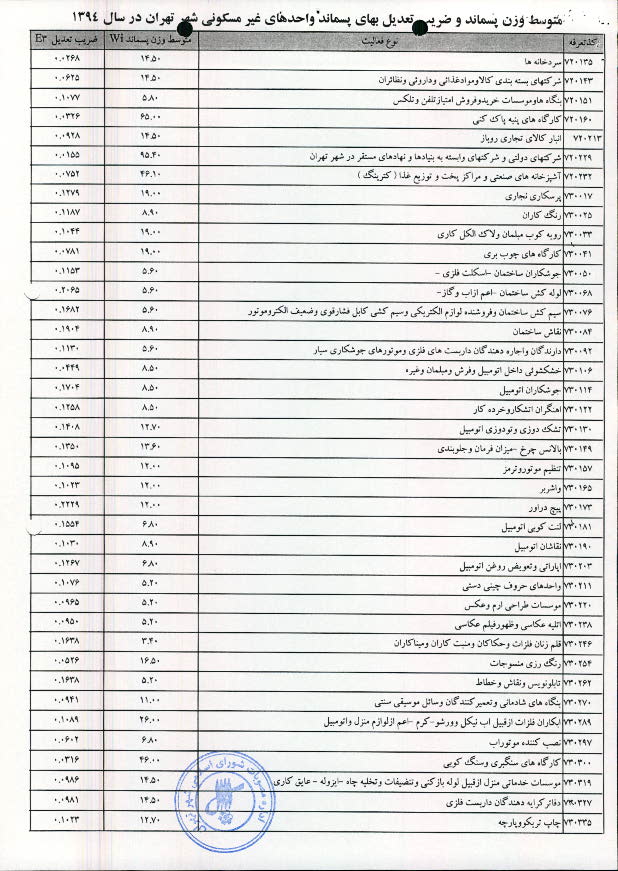 متوسط وزن پسماند و ضریب تعدیل بهای پسماند واحدهای غیر مسکونی شهر تهران در سال ۱۳۹۴
کدتعرفه نوع فعالیت متوسط وزن پسماند Wi ضریب تعدیل E۳
۷۲۰۱۳۵ سردخانه ها ۱۴.۵۰ ۰.۰۲۶۸
۷۲۰۱۴۳ شرکتهای بسته بندی کالاوموادغذائی وداروئی ونظائران ۱۴.۵۰ ۰.۰۶۲۵
۷۲۰۱۵۱ بنگاه هاوموسسات خریدوفروش امتیازتلفن وتلکس ۵.۸۰ ۰.۱۰۷۷
۷۲۰۱۶۰ کارگاه های پنبه پاک کنی ۶۵.۰۰ ۰.۰۳۲۶
۷۲۰۲۱۳ انبار کالای تجاری روباز ۱۴.۵۰ ۰.۰۹۲۸
۷۲۰۲۲۹ شرکتهای دولتی و شرکتهای وابسته به بنیادها و نهادهای مستقر در شهر تهران ۹۵.۴۰ ۰.۰۱۵۵
۷۲۰۲۳۲ آشپزخانه های صنعتی و مراکز پخت و توزیع غذا ( کترینگ ) ۴۶.۱۰ ۰.۰۷۵۲
۷۳۰۰۱۷ پرسکاری نجاری ۱۹.۰۰ ۰.۱۲۷۹
۷۳۰۰۲۵ رنگ کاران ۸.۹۰ ۰.۱۱۸۷
۷۳۰۰۳۳ رویه کوب مبلمان ولاک الکل کاری ۱۹.۰۰ ۰.۱۰۴۴
۷۳۰۰۴۱ کارگاه های چوب بری ۱۹.۰۰ ۰.۰۷۸۱
۷۳۰۰۵۰ جوشکاران ساختمان -اسکلت فلزی - ۵.۶۰ ۰.۱۱۵۳
۷۳۰۰۶۸ لوله کش ساختمان -اعم ازاب وگاز- ۵.۶۰ ۰.۲۰۶۵
۷۳۰۰۷۶ سیم کش ساختمان وفروشنده لوازم الکتریکی وسیم کشی کابل فشارقوی وضعیف الکتروموتور ۵.۶۰ ۰.۱۶۸۲
۷۳۰۰۸۴ نقاش ساختمان ۸.۹۰ ۰.۱۹۰۴
۷۳۰۰۹۲ دارندگان واجاره دهندگان داربست های فلزی وموتورهای جوشکاری سیار ۵.۶۰ ۰.۱۱۳۰
۷۳۰۱۰۶ خشکشوئی داخل اتومبیل وفرش ومبلمان وغیره ۸.۵۰ ۰.۰۴۴۹
۷۳۰۱۱۴ جوشکاران اتومبیل ۸.۵۰ ۰.۱۷۰۴
۷۳۰۱۲۲ اهنگران اتشکاروخرده کار ۸.۵۰ ۰.۱۲۵۸
۷۳۰۱۳۰ تشک دوزی وتودوزی اتومبیل ۱۲.۷۰ ۰.۱۴۰۸
۷۳۰۱۴۹ بالانس چرخ -میزان فرمان وجلوبندی ۱۳.۶۰ ۰.۱۳۵۰
۷۳۰۱۵۷ تنظیم موتوروترمز ۱۲.۰۰ ۰.۱۰۹۵
۷۳۰۱۶۵ واشربر ۱۲.۰۰ ۰.۱۰۲۳
۷۳۰۱۷۳ پیچ دراور ۱۲.۰۰ ۰.۲۲۲۹
۷۳۰۱۸۱ لنت کوبی اتومبیل ۶.۸۰ ۰.۱۵۵۴
۷۳۰۱۹۰ نقاشان اتومبیل ۸.۹۰ ۰.۱۰۳۰
۷۳۰۲۰۳ اپاراتی وتعویض روغن اتومبیل ۶.۸۰ ۰.۱۲۶۷
۷۳۰۲۱۱ واحدهای حروف چینی دستی ۵.۲۰ ۰.۱۰۷۶
۷۳۰۲۲۰ موسسات طراحی ارم وعکس ۵.۲۰ ۰.۰۹۶۵
۷۳۰۲۳۸ اتلیه عکاسی وظهورفیلم عکاسی ۵.۲۰ ۰.۰۹۵۰
۷۳۰۲۴۶ قلم زنان فلزات وحکاکان ومنبت کاران ومیناکاران ۳.۴۰ ۰.۱۶۳۸
۷۳۰۲۵۴ رنگ رزی منسوجات ۱۶.۵۰ ۰.۰۵۲۶
۷۳۰۲۶۲ تابلونویس ونقاش وخطاط ۵.۲۰ ۰.۱۶۳۸
۷۳۰۲۷۰ بنگاه های شادمانی وتعمیرکنندگان وسائل موسیقی سنتی ۱۱.۰۰ ۰.۰۹۴۱
۷۳۰۲۸۹ ابکاران فلزات ازقبیل اب نیکل وورشو-کرم -اعم ازلوازم منزل واتومبیل ۲۶.۰۰ ۰.۱۰۸۹
۷۳۰۲۹۷ نصب کننده موتوراب ۶.۸۰ ۰.۰۶۰۲
۷۳۰۳۰۰ کارگاه های سنگبری وسنگ کوبی ۴۶.۰۰ ۰.۰۳۱۶
۷۳۰۳۱۹ موسسات خدماتی منزل ازقبیل لوله بازکنی وتنظیفات وتخلیه چاه -ایزوله - عایق کاری ۱۴.۵۰ ۰.۰۹۸۶
۷۳۰۳۲۷ دفاترکرایه دهندگان داربست فلزی ۱۴.۵۰ ۰.۰۹۸۱
۷۳۰۳۳۵ چاپ تریکووپارچه ۱۲.۷۰ ۰.۱۰۲۳
اداره مصوبات شورای اسلامی شهر تهران